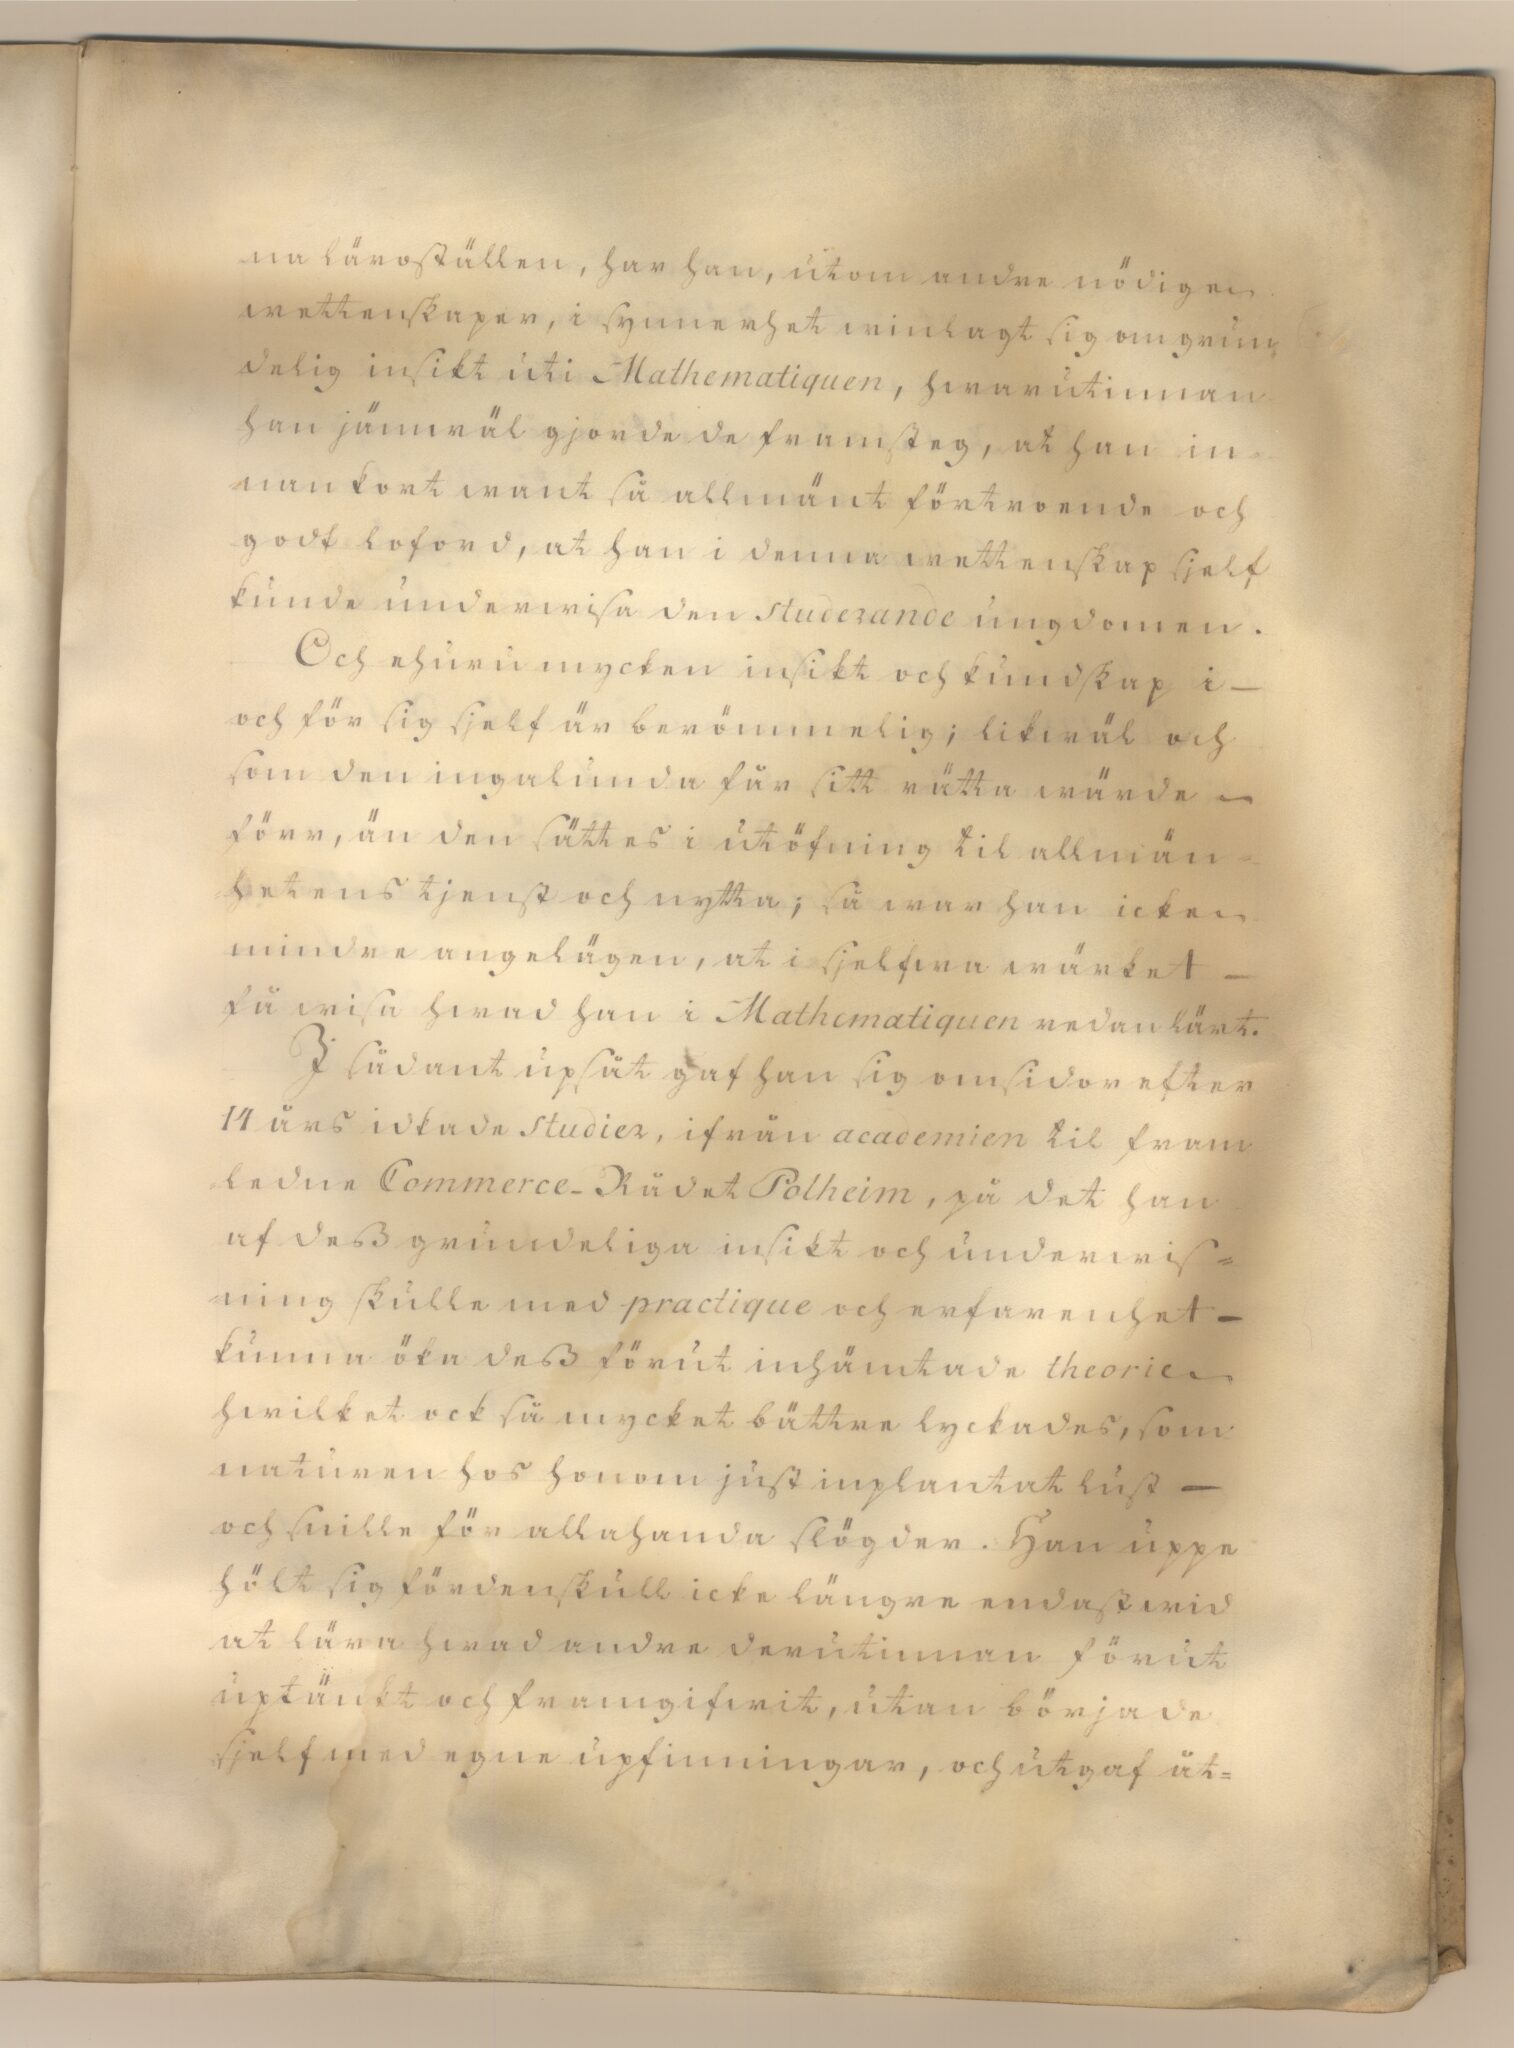 na läroställen, har han, utom andre nödige
wettenskaper, i synnerhet winlagt sig om grun
delig insikt uti Mathematiquen, hwarutinnan
han jämwäl gjorde de framsteg, at han in
nan kort want så allmänt förtroende och
godt loford, at han i denna wettenskap sjelf
kunde underwisa den studerande ungdomen.
Och ehuru mycken insikt och kundskap i —
och för sig sjelf är berömmelig; likwäl och
som den ingalunda får sitt rätta wärde —
förr, än den sättes i utöfning til allmän-
hetens tjenst och nytta; så war han icke
mindre angelägen, at i sjelfwa wärket —
få wisa hwad han i Mathematiquen redan lärt.
I sådant upsåt gaf han sig omsidor efter
14 års idkade studier, ifrån academien til fram
ledne Commerce-Rådet Polheim, på det han
af deß grundeliga insikt och underwis=
ning skulle med practique och erfarenhet —
kunna öka deß förut inhämtade theorie
hwilket ock så mycket bättre lyckades, som
naturen hos honom just inplantat lust —
och snille för allahanda slögder. Han uppe
hölt sig fördenskull icke längre endast wid
at lära hwad andre derutinnan förut
uptänkt och framgifwit, utan började
sjelf med egne upfinningar, och utgaf åt=